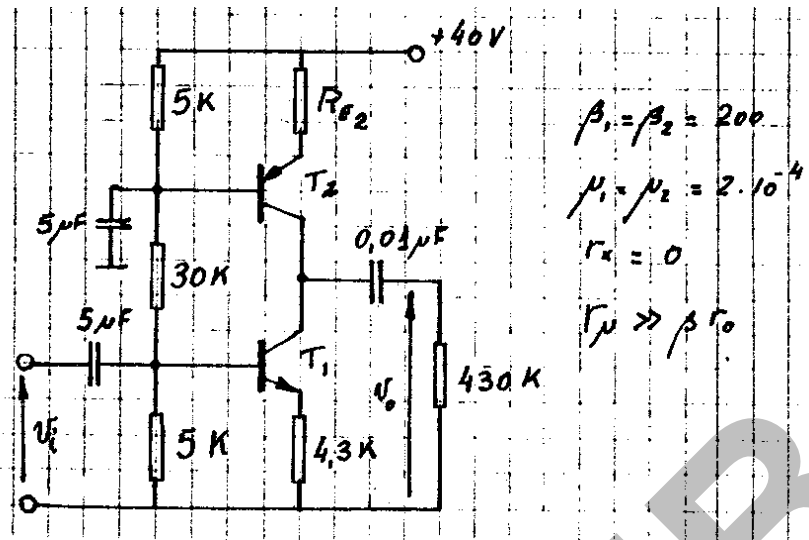 +40V
5K
R_E2
T2
5µF
0,01µF
30K
5µF
T1
430K
v_o
v_i
5K
4,3K
β1 = β2 = 200
µ1 = µ2 = 2·10⁻⁴
r_x = 0
r_µ >> β r_o